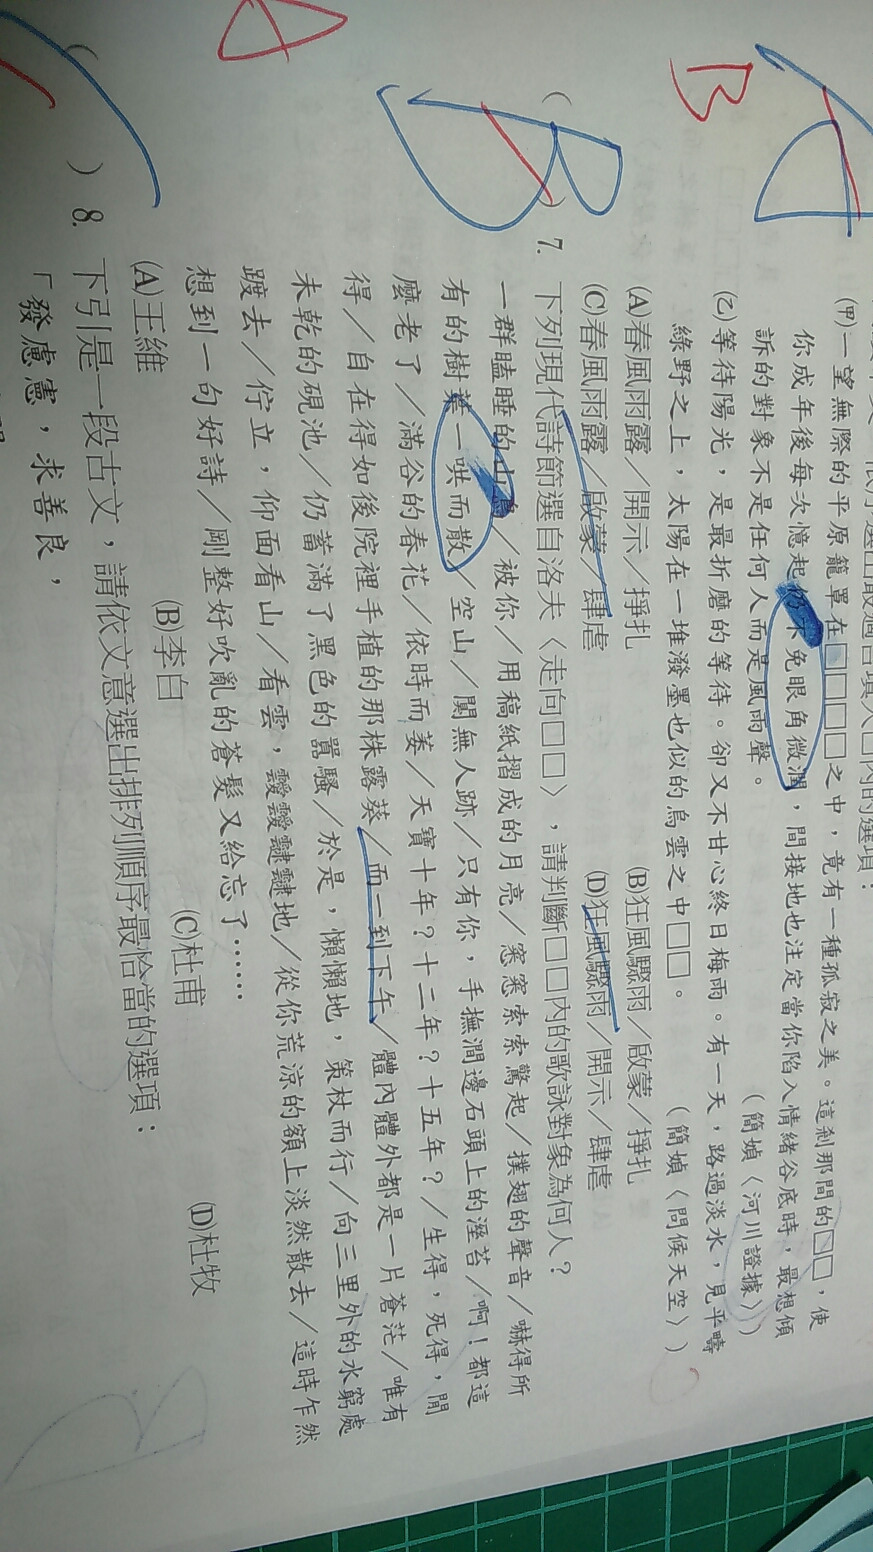 (甲)一望無際的平原籠罩在□□□□之中，竟有一種孤寂之美。這剎那間的□□，使
你成年後每次憶起仍不免眼角微潤，間接地也注定當你陷入情緒谷底時，最想傾
訴的對象不是任何人而是風雨聲。（簡媜〈河川證據〉）
(乙)等待陽光，是最折磨的等待。卻又不甘心終日梅雨。有一天，路過淡水，見平疇
綠野之上，太陽在一堆潑墨也似的烏雲之中□□。（簡媜〈問候天空〉）
(A)春風雨露／開示／掙扎 (B)狂風驟雨／啟蒙／掙扎
(C)春風雨露／啟蒙／肆虐 (D)狂風驟雨／開示／肆虐
B
A
( B ) 7. 下列現代詩節選自洛夫〈走向□□〉，請判斷□□內的歌詠對象為何人？
一群瞌睡的山鳥／被你／用稿紙摺成的月亮／窸窸索索驚起／撲翅的聲音／嚇得所
有的樹葉一哄而散／空山／闃無人跡／只有你，手撫澗邊石頭上的溼苔／啊！都這
麼老了／滿谷的春花／依時而萎／天寶十年？十二年？十五年？／生得，死得，閒
得／自在得如後院裡手植的那株露葵／而一到下午／體內體外都是一片蒼茫／唯有
未乾的硯池／仍蓄滿了黑色的囂騷／於是，懶懶地，策杖而行／向三里外的水窮處
踱去／佇立，仰面看山／看雲，靉靉靆靆地／從你荒涼的額上淡然散去／這時乍然
想到一句好詩／剛整好吹亂的蒼髮又給忘了……
(A)王維 (B)李白 (C)杜甫 (D)杜牧
A
( ) 8. 下引是一段古文，請依文意選出排列順序最恰當的選項：
「發慮憲，求善良，